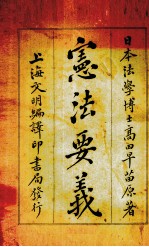 日本法學博士高田早苗原著
憲法要義
上海文明編譯印書局發行